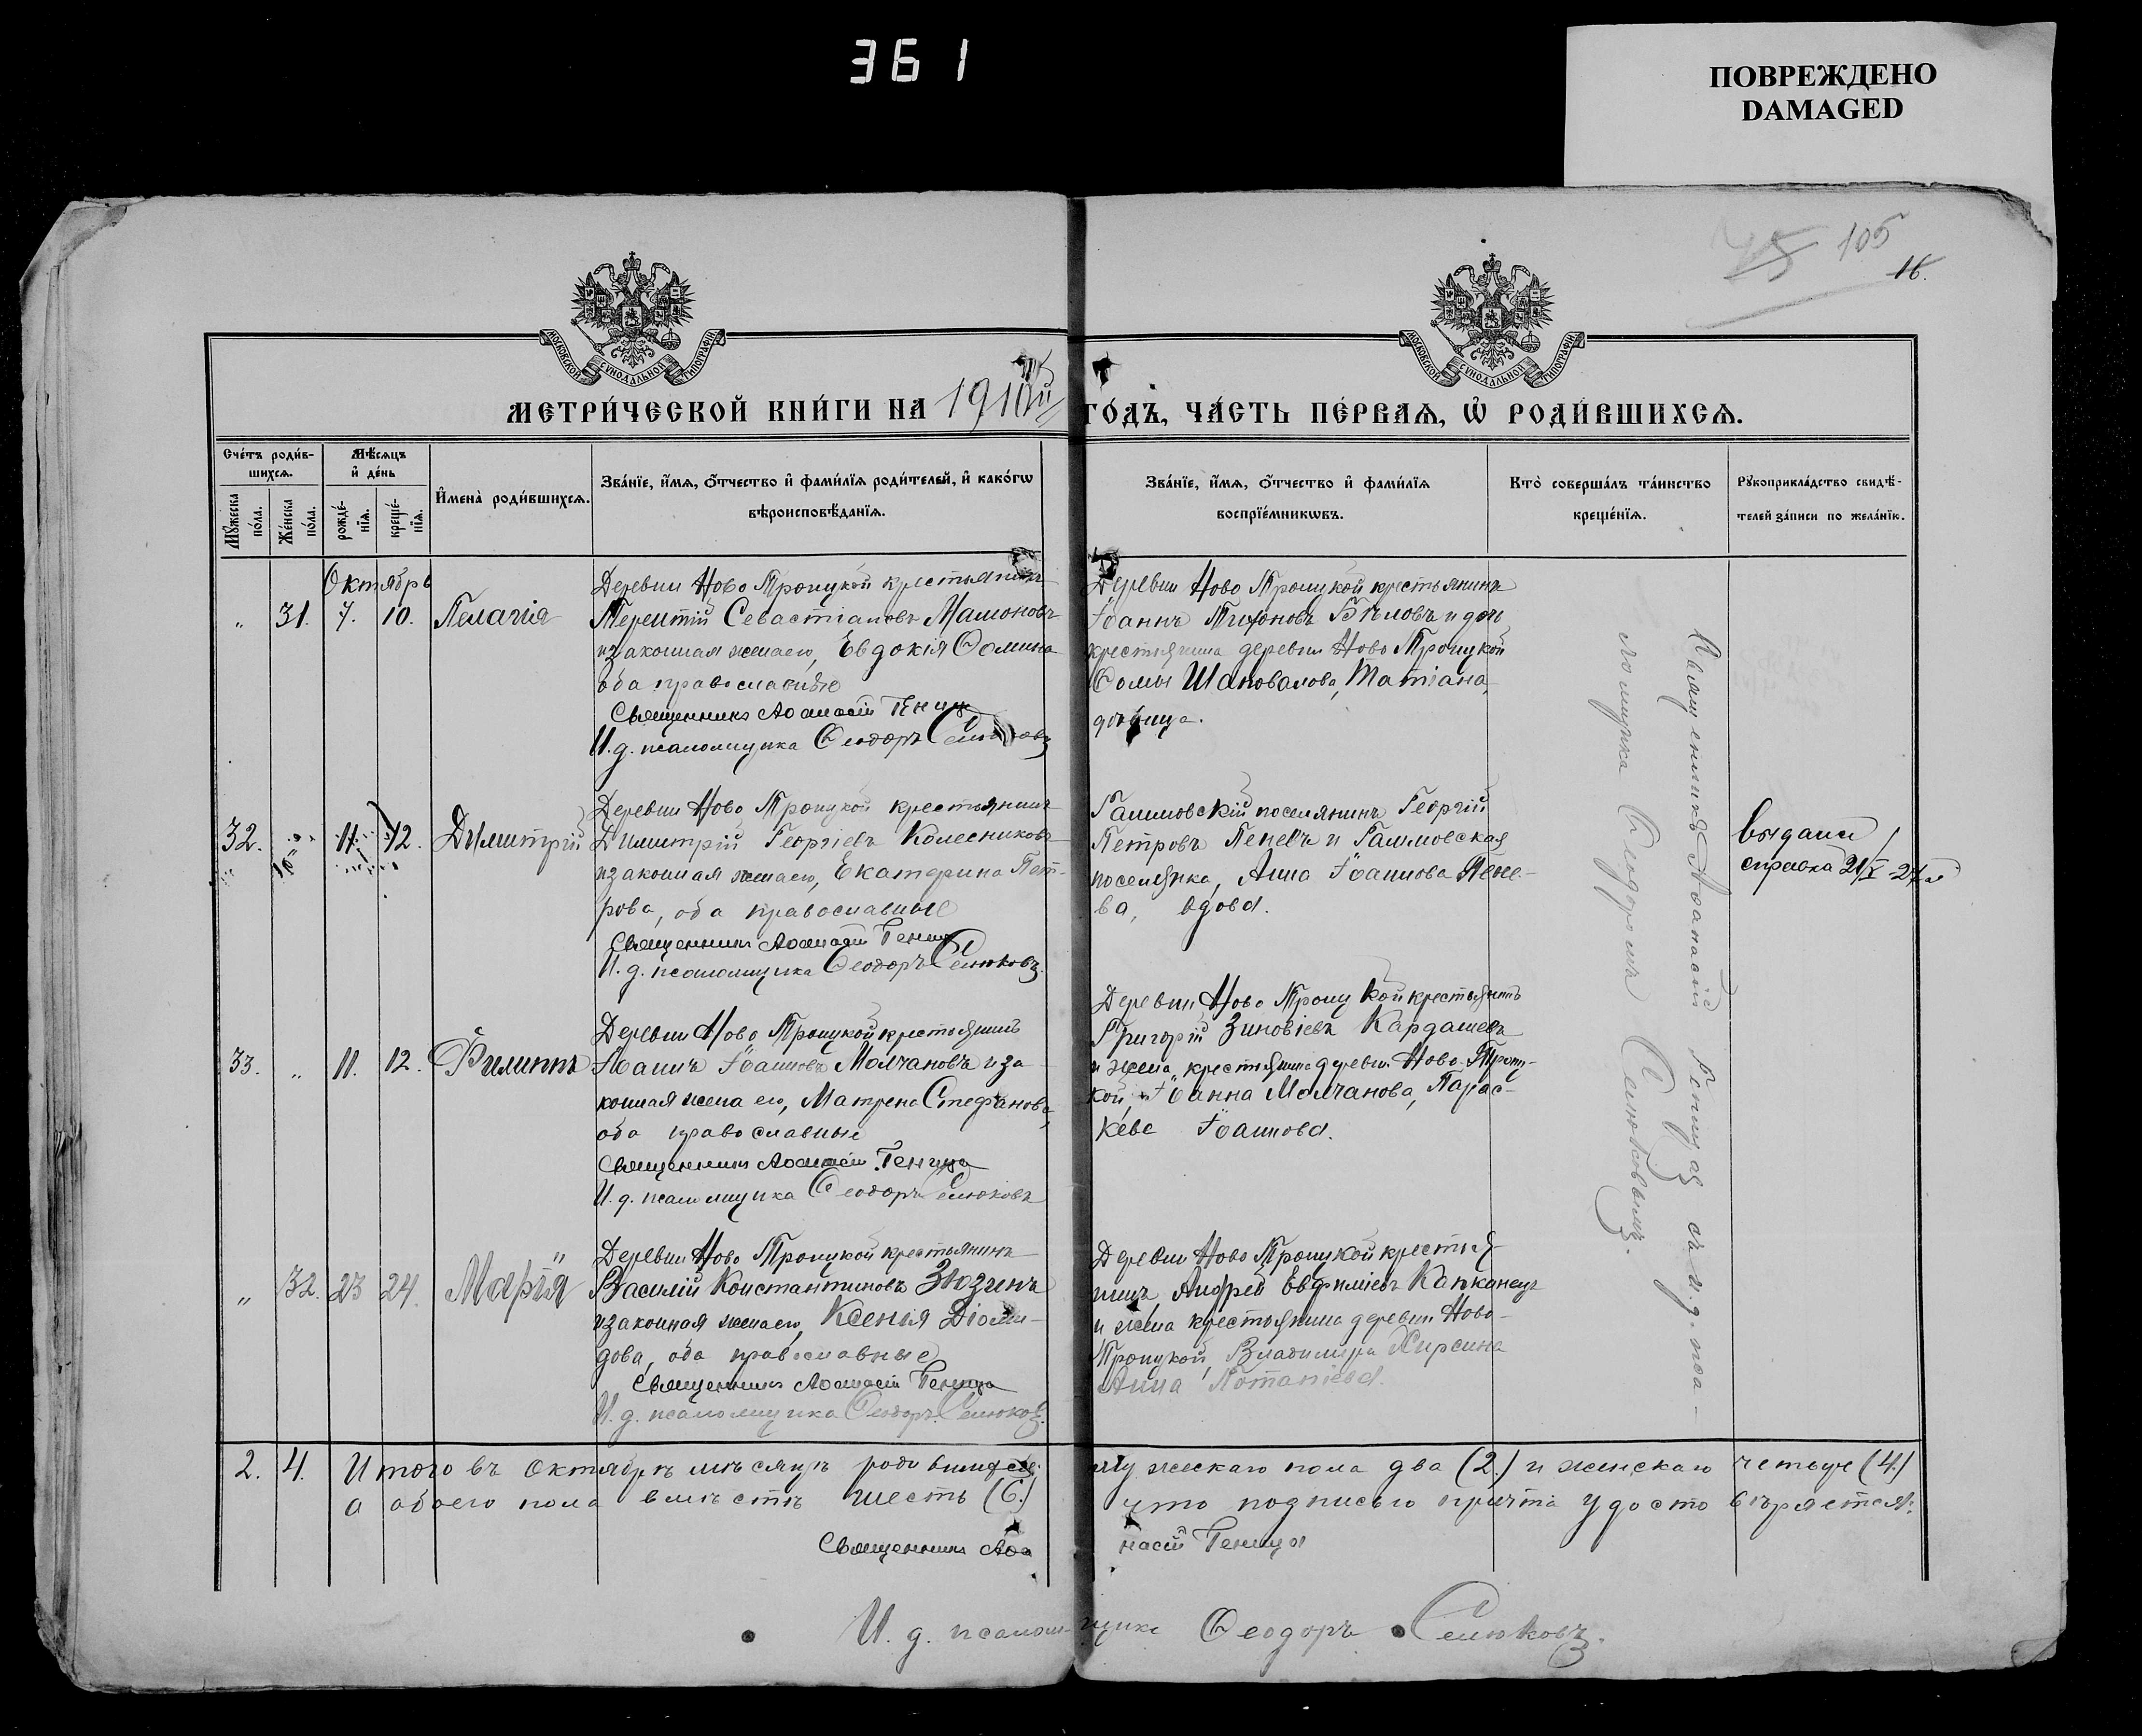 361
ПОВРЕЖДЕНО
DAMAGED
105
16.
МОСКОВСКОЙ СѴНОДАЛЬНОЙ ТИПОГРАФІИ
МОСКОВСКОЙ СѴНОДАЛЬНОЙ ТИПОГРАФІИ
МЕТРИ́ЧЕСКОЙ КНИ́ГИ НА 1910й ГО́ДЪ, ЧА́СТЬ ПЕ́РВАЯ, Ѽ РОДИ́ВШИХСЯ.
Сче́тъ роди́в-
шихся.
Мѣ́сяцъ
и҆ де́нь
Мꙋ́жеска
по́ла.
Же́нска
по́ла.
рожде́-
нїя.
креще́-
нїя.
И҆мена̀ роди́вшихся.
Зва́нїе, и҆́мя, ѻ҆́тчество и҆ фами́лїя роди́телей, и҆ како́гѡ
вѣроисповѣ́данїя.
Зва́нїе, и҆́мя, ѻ҆́тчество и҆ фами́лїя
воспрїе́мникѡвъ.
Кто̀ соверша́лъ та́инство
креще́нїя.
Рꙋкоприкла́дство свидѣ́-
телей за́писи по жела́нїю.
Октябрь
„ 31. 7. 10. Пелагія
Деревни Ново Троицкой крестьянинъ
Терентій Севастіановъ Машоновъ
и законная жена его, Евдокія Ѳомина
оба православные
Священникъ Аѳанасій Геница
И. д. псаломщика Ѳеодоръ Селюковъ
Деревни Ново Троицкой крестьянинъ
Іоаннъ Тихоновъ Бѣловъ и дочь
крестьянина деревни Ново Троицкой
Ѳомы Шаповалова, Татіана,
дѣвица.
32. „ 11. 12. Димитрій
Деревни Ново Троицкой крестьянинъ
Димитрій Георгіевъ Колесниковъ
и законная жена его, Екатерина Пет-
рова, оба православные
Священникъ Аѳанасій Геница
И. д. псаломщика Ѳеодоръ Селюковъ.
Георгій
Петровъ Пеневъ и
поселянка, Анна Іоаннова Пене-
ва, вдова.
Выдана
справка 21/X
33. „ 11. 12. Филиппъ
Деревни Ново Троицкой крестьянинъ
Іоаннъ Іоанновъ Молчановъ и за-
конная жена его, Матрена Стефанова,
оба православные
Священникъ Аѳанасій Геница
И. д. псаломщика Ѳеодоръ Селюковъ
Деревни Ново Троицкой крестьянинъ
Григорій Зиновіевъ Кардашевъ
и жена крестьянина деревни Ново-Троиц-
кой, Іоанна Молчанова, Парас-
кева Іоаннова.
„ 32. 23 24. Марія
Деревни Ново Троицкой крестьянинъ
Василій Константиновъ Зюзинъ
и законная жена его, Ксенія Діоми-
дова, оба православные
Священникъ Аѳанасій Геница
И. д. псаломщика Ѳеодоръ Селюковъ.
Деревни Ново Троицкой крестья-
нинъ Андрей Евфиміевъ Капканецъ
и жена крестьянина деревни Ново-
Троицкой, Владимира Хирсина
Анна
Священникъ Аѳанасій Геница съ и. д. пса-
ломщика Ѳеодоромъ Селюковымъ.
2. 4. Итого въ Октябрѣ мѣсяцѣ родившихся: мужескаго пола два (2.) и женскаго четыре (4.)
а обоего пола вмѣстѣ шесть (6.) что подписью причта удостовѣряется:
Священникъ Аѳанасій Геница
И. д. псаломщика Ѳеодоръ Селюковъ.